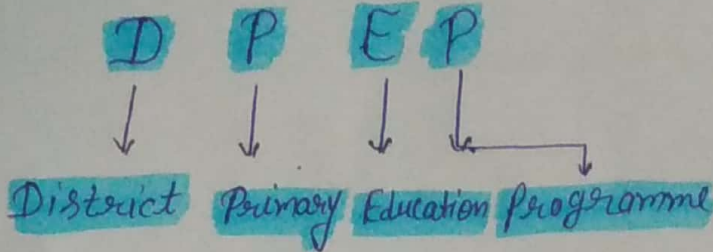 D P E P
District Primary Education Programme